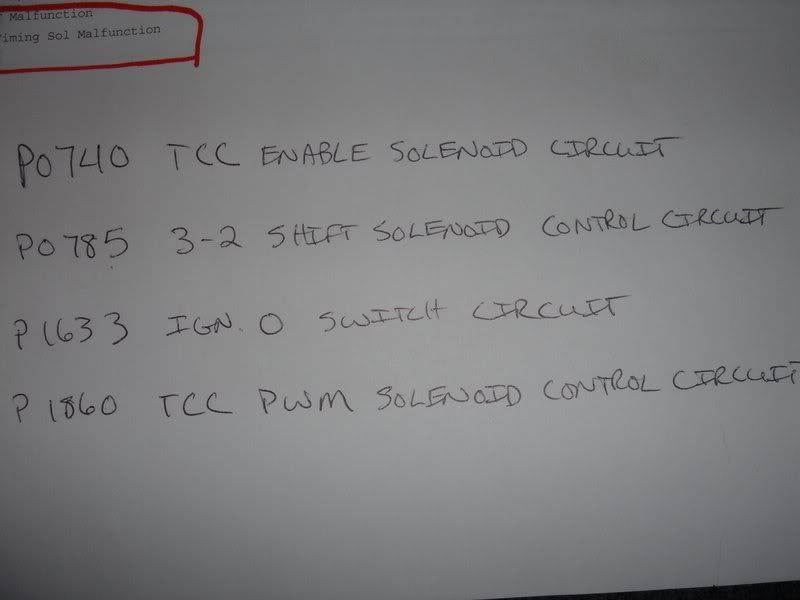 Malfunction
Timing Sol Malfunction
P0740 TCC ENABLE SOLENOID CIRCUIT
P0785 3-2 SHIFT SOLENOID CONTROL CIRCUIT
P1633 IGN. 0 SWITCH CIRCUIT
P1860 TCC PWM SOLENOID CONTROL CIRCUIT